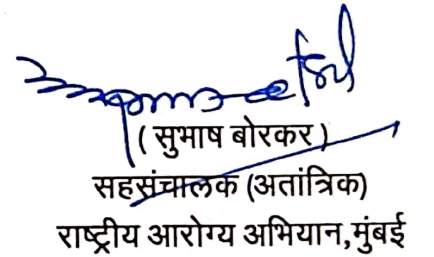 ( सुभाष बोरकर )
सहसंचालक (अतांत्रिक)
राष्ट्रीय आरोग्य अभियान,मुंबई